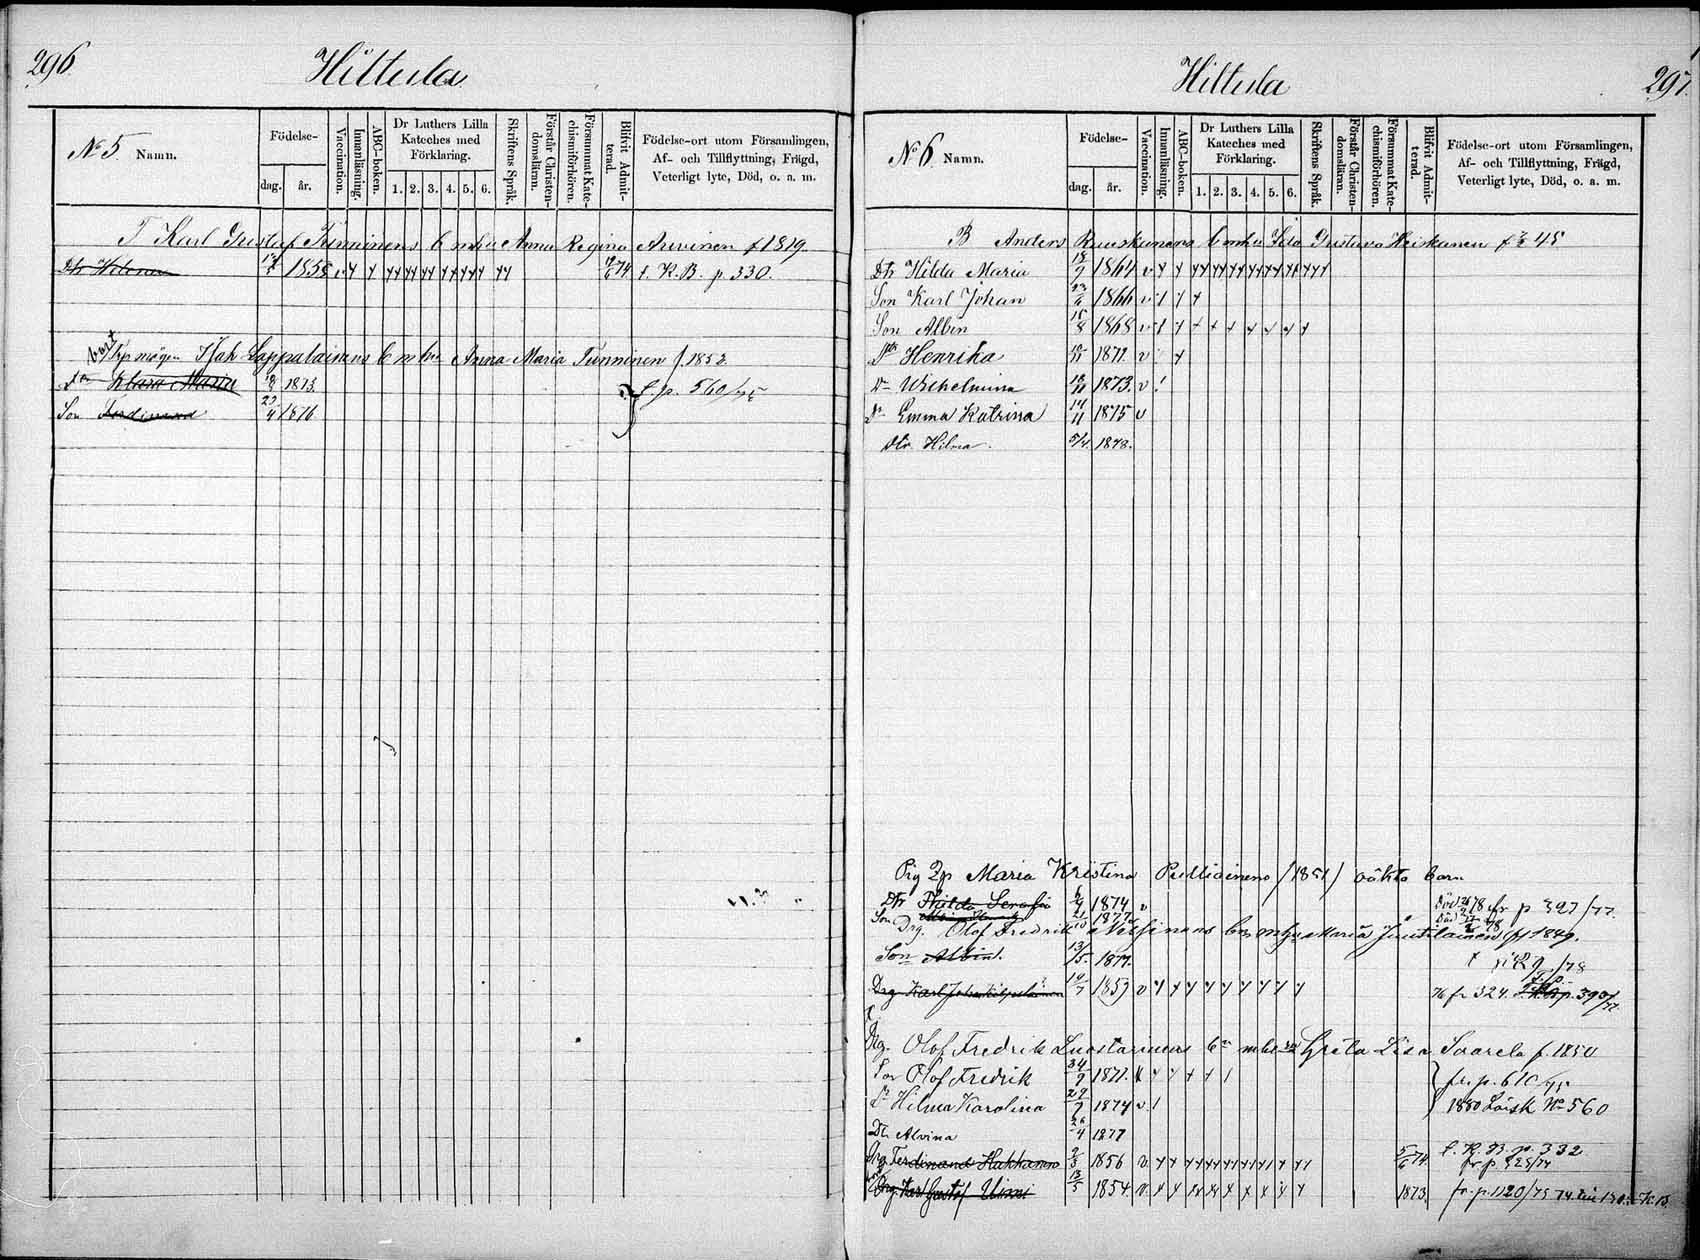 296
Hiltula
No 5. Namn.
Födelse-
dag.
år.
Vaccination.
Innanläsning.
ABC-boken.
Dr Luthers Lilla
Kateches med
Förklaring.
1. 2. 3. 4. 5. 6.
Skriftens Språk.
Förstår Christen-
domslären.
Försummat Kate-
chismiförhören.
Blifvit Admit-
terad.
Födelse-ort utom Församlingen,
Af- och Tillflyttning, Frägd,
Veterligt lyte, Död, o. a. m.
T Karl Gustaf Tunninens b m hu Anna Regina Arvinen f 1819.
1858 v f. K. B. p. 330.
bort
Lappalainens b m hu Anna Maria Tunninen f. 1852.
Klara Maria 1873
Son Ferdinand 23/4 1876
f. p. 560/75
Hiltula
297.
No 6. Namn.
Födelse-
dag.
år.
Vaccination.
Innanläsning.
ABC-boken.
Dr Luthers Lilla
Kateches med
Förklaring.
1. 2. 3. 4. 5. 6.
Skriftens Språk.
Förstår Christen-
domslären.
Försummat Kate-
chismiförhören.
Blifvit Admit-
terad.
Födelse-ort utom Församlingen,
Af- och Tillflyttning, Frägd,
Veterligt lyte, Död, o. a. m.
B Anders Ruuskanens b m hu Gustava Heiskanen f 45
Dtr Hilda Maria 1864 v
Son Karl Johan 1866 v
Son Albin 15/8 1868 v
Henrika 1871. v
Wilhelmina 1873. v
Emma Katrina 14/11 1875 v
Dtr. Hilma. 5/4. 1878.
Pig Maria Kristina Pulliainens /1851/ oäkta barn
Dtr Hilda Serafia 1874 v Död fr p 327/77.
Son 1877 Död
Drg. Olof Fredrik Nissinens b m hu Maria Juutilainen f 1849.
Son Albin. 13/5. 1877.
Drg Karl Johan 1853 v fr 324.
Drg. Olof Fredrik Luostarinens b m hu Greta Lisa Saarela f. 1850
Son Olof Fredrik 1871. fr. p. 610/75
Hilma Karolina 1874 v 1880 Loisk No 560
Dtr Alvina 1877
Drg Ferdinand Hakkarainen 1856 v f. K. B. p. 332
Drg. Karl Gustaf 1854. 1873. fr. p. 1120/75